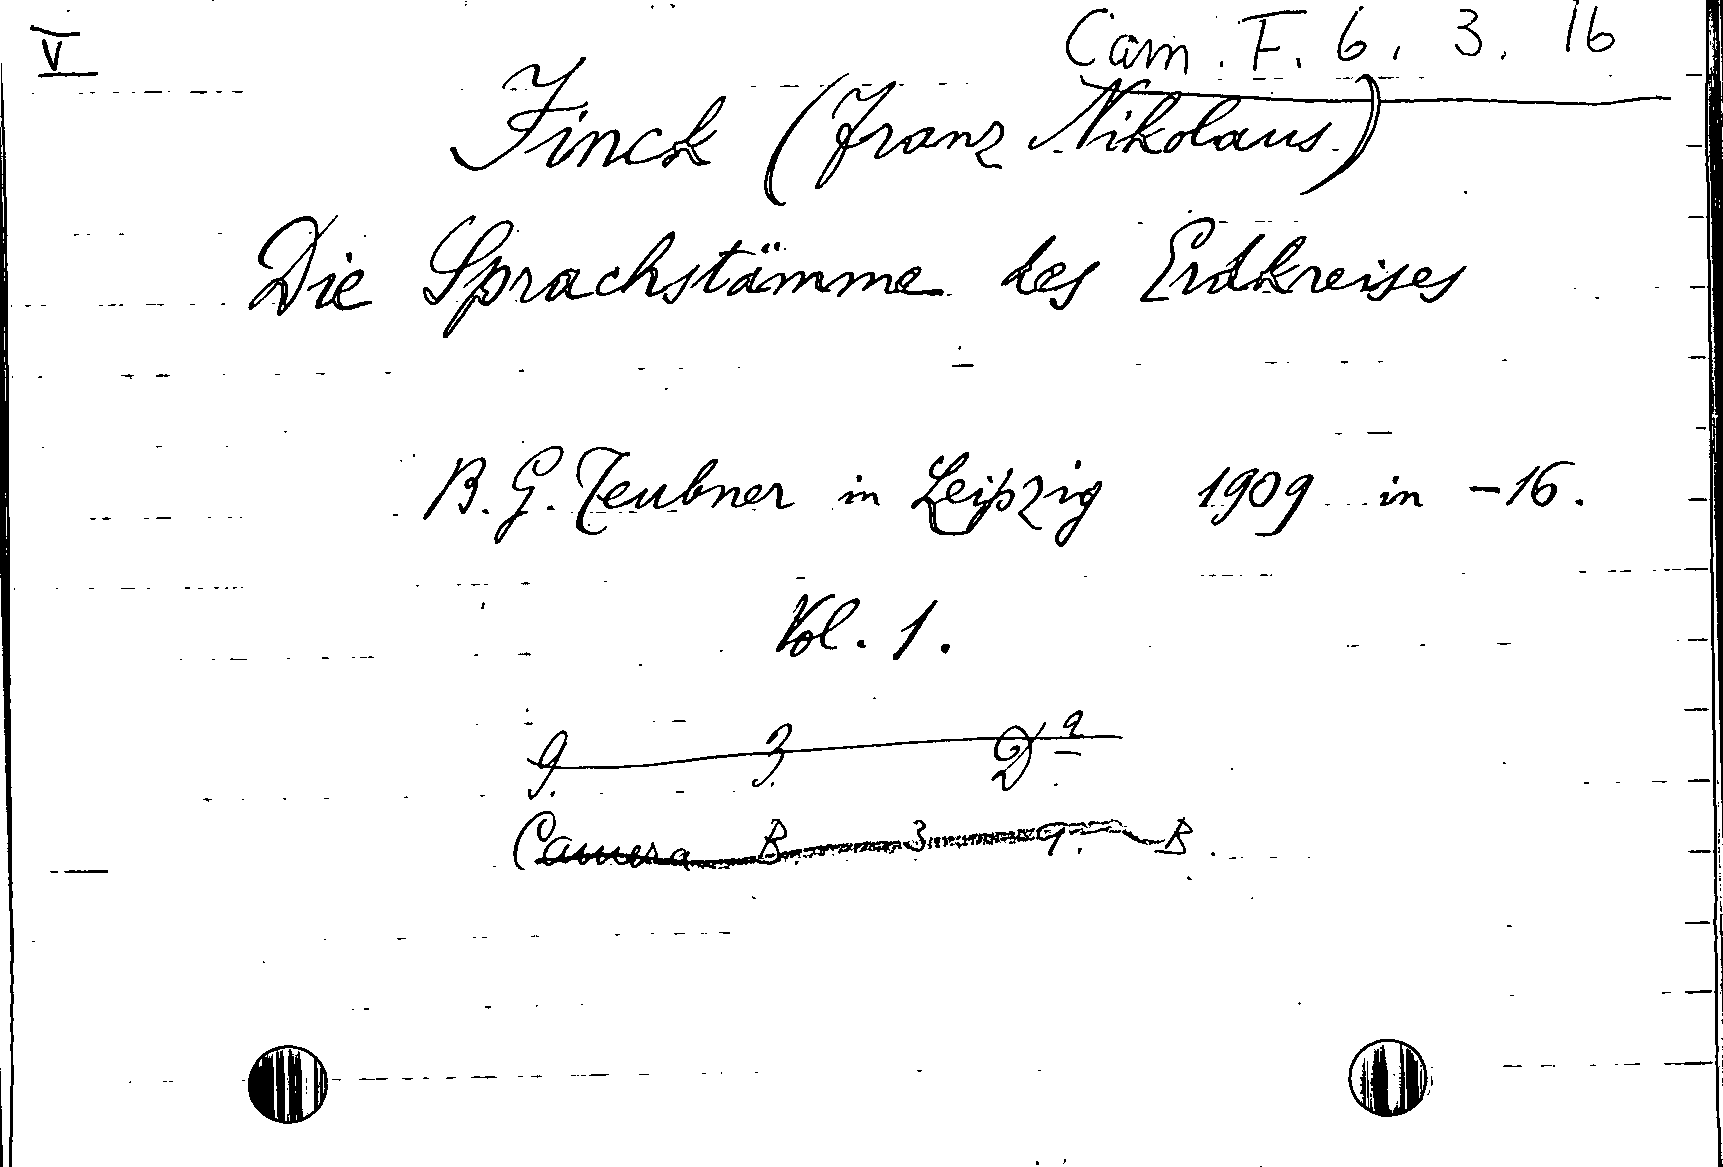 V
Cam. F. 6. 3. 16
Finck (Franz Nikolaus)
Die Sprachstämme des Erdkreises
B. G. Teubner in Leipzig 1909 in -16.
Vol. 1.
9. 3. D a
Camera B. 3 9. B.